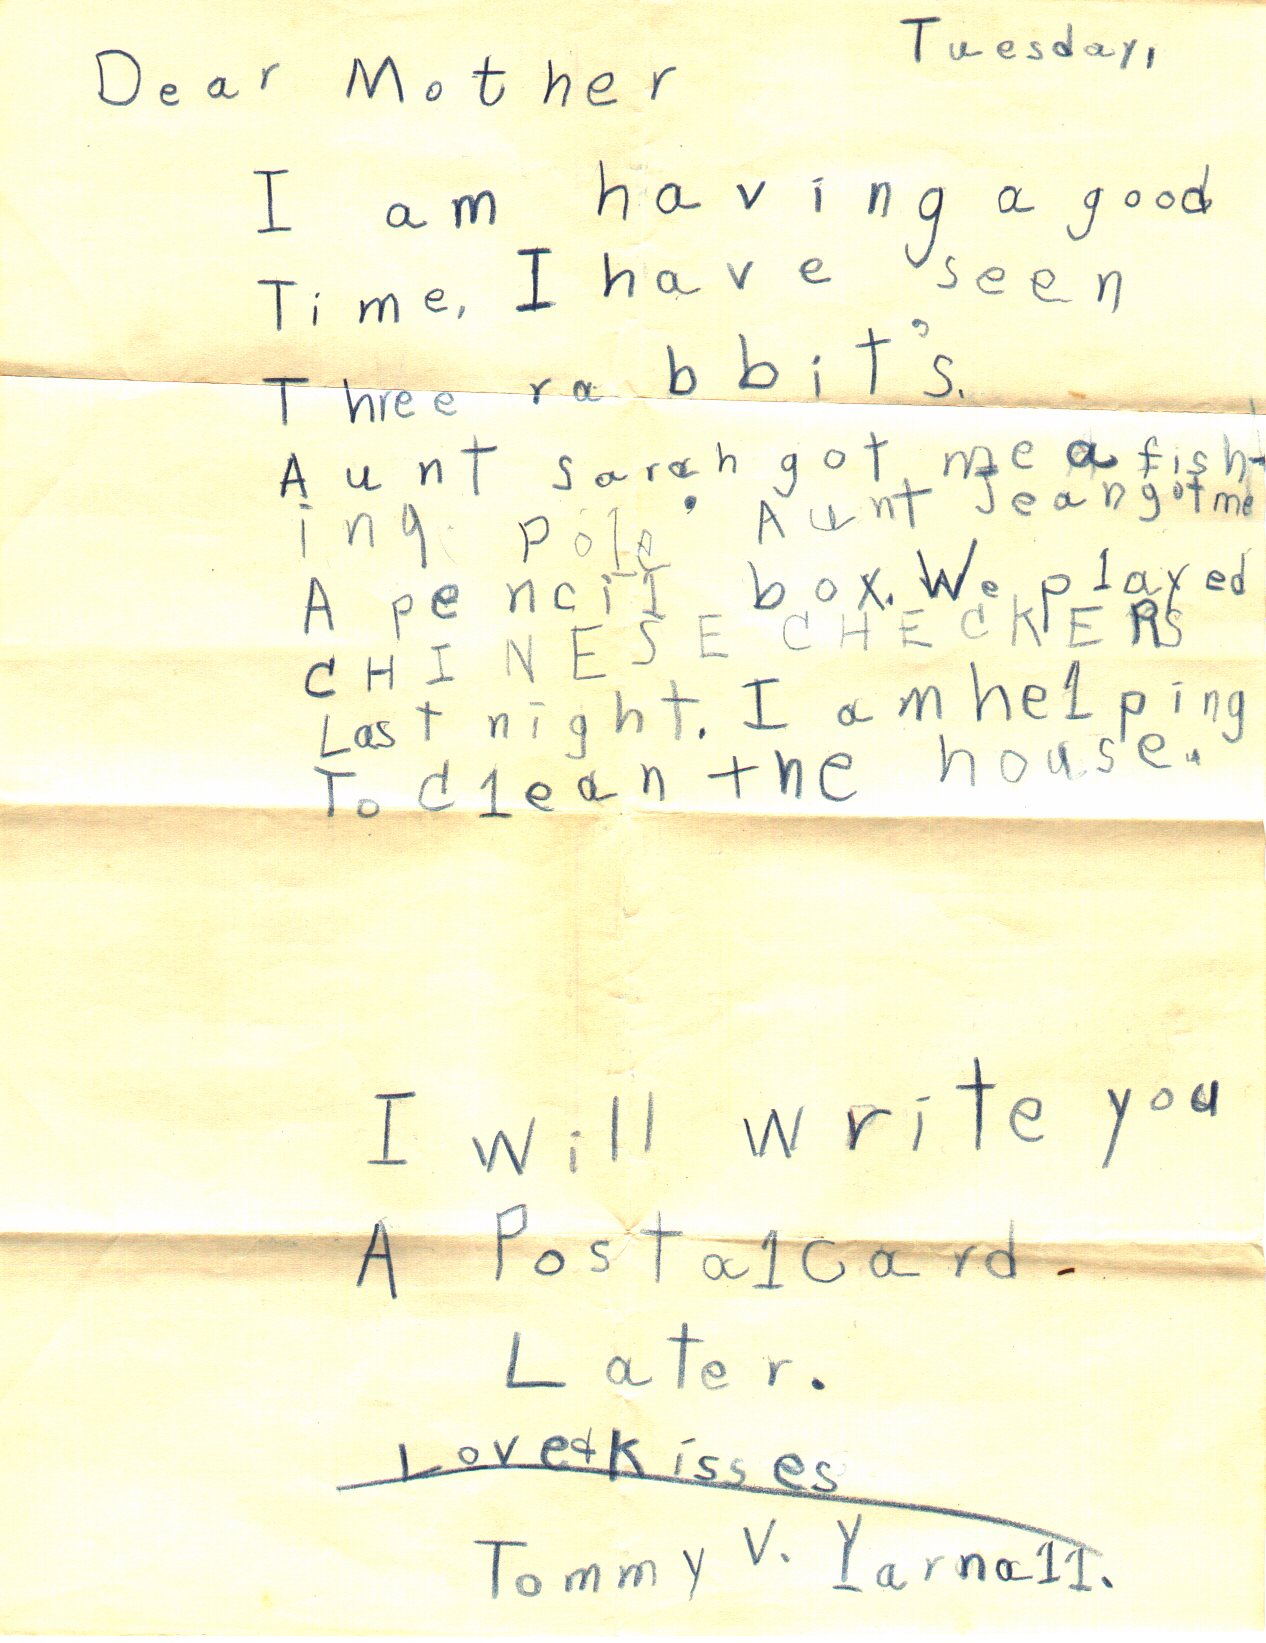 Tuesday,
Dear Mother
I am having a good
Time, I have seen
Three rabbit's.
Aunt sarah got me a fish-
ing pole. Aunt Jean got me
A pencil box. We played
CHINESE CHECKERS
Last night. I am helping
To clean the house.
I will write you
A Postalcard.
Later.
Love & Kisses
Tommy V. Yarnall.